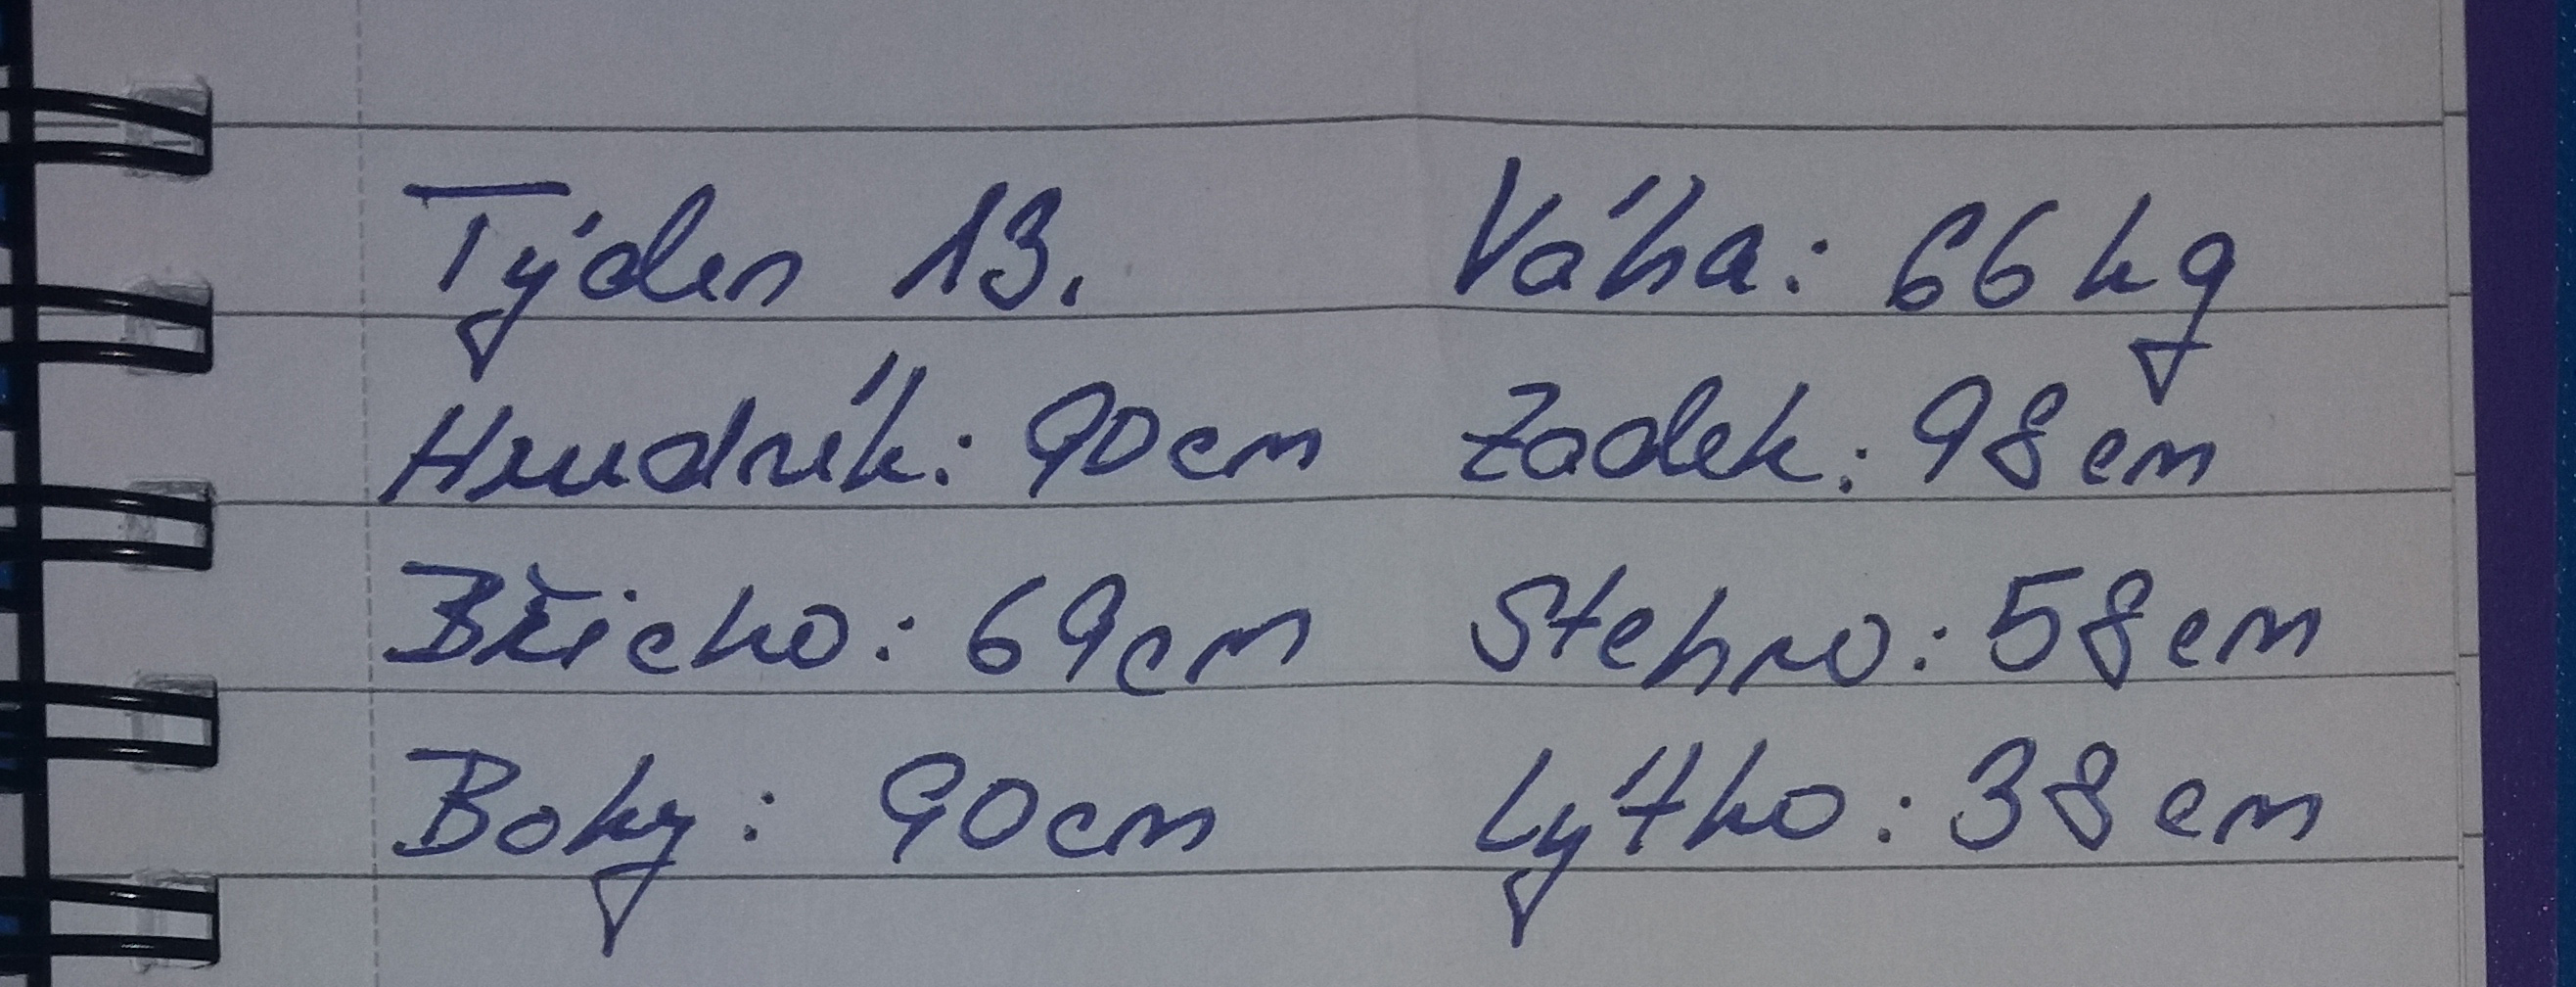 Týden 13. Váha: 66 kg
Hrudník: 90cm Zadek: 98cm
Břicho: 69cm Stehno: 58cm
Boky: 90cm Lýtko: 38cm